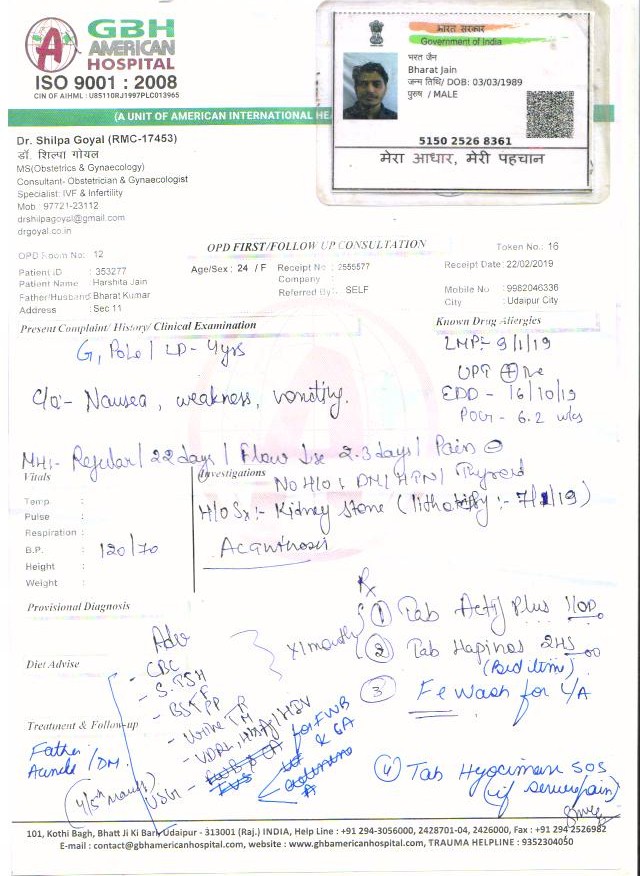 GBH
AMERICAN
HOSPITAL
ISO 9001 : 2008
CIN OF AIHML : U85110RJ1997PLC013965
(A UNIT OF AMERICAN INTERNATIONAL HEA
भारत सरकार
Government of India
भरत जैन
Bharat Jain
जन्म तिथि/ DOB: 03/03/1989
पुरुष / MALE
5150 2526 8361
मेरा आधार, मेरी पहचान
Dr. Shilpa Goyal (RMC-17453)
डॉ. शिल्पा गोयल
MS(Obstetrics & Gynaecology)
Consultant- Obstetrician & Gynaecologist
Specialist: IVF & Infertility
Mob : 97721-23112
drshilpagoyal@gmail.com
drgoyal.co.in
OPD FIRST/FOLLOW UP CONSULTATION
OPD Room No: 12
Token No.: 16
Patient ID : 353277
Age/Sex : 24 / F
Receipt No : 2555577
Receipt Date : 22/02/2019
Patient Name : Harshita Jain
Company :
Father/Husband Bharat Kumar
Referred By : SELF
Mobile No : 9982046336
Address : Sec 11
City : Udaipur City
Present Complaint/ History/ Clinical Examination
Known Drug Allergies
LMP:- 9/1/19
UPT +ve
EDD - 16/10/19
POG - 6.2 wks
c/o - Nausea, weakness, vomiting.
MH:- Regular/ 22 days/ Flow 2-3 days/ Pain
Vitals
Investigations
No H/O : DM/ HTN/ Thyroid
H/O Sx:- Kidney stone
Acanthosis
Temp :
Pulse :
Respiration :
B.P. : 120/70
Height :
Weight :
Provisional Diagnosis
Rx
Adv
x1 month
1 Tab Plus 1 OD
2 Tab 2HS
(Bed time)
3 Wash for
Diet Advise
- CBC
- S. TSH
Treatment & Follow-up
Father
4 Tab SOS
(if severe pain)
101, Kothi Bagh, Bhatt Ji Ki Bari, Udaipur - 313001 (Raj.) INDIA, Help Line : +91 294-3056000, 2428701-04, 2426000, Fax : +91 294 2526982
E-mail : contact@gbhamericanhospital.com, website : www.ghbamericanhospital.com, TRAUMA HELPLINE : 9352304050